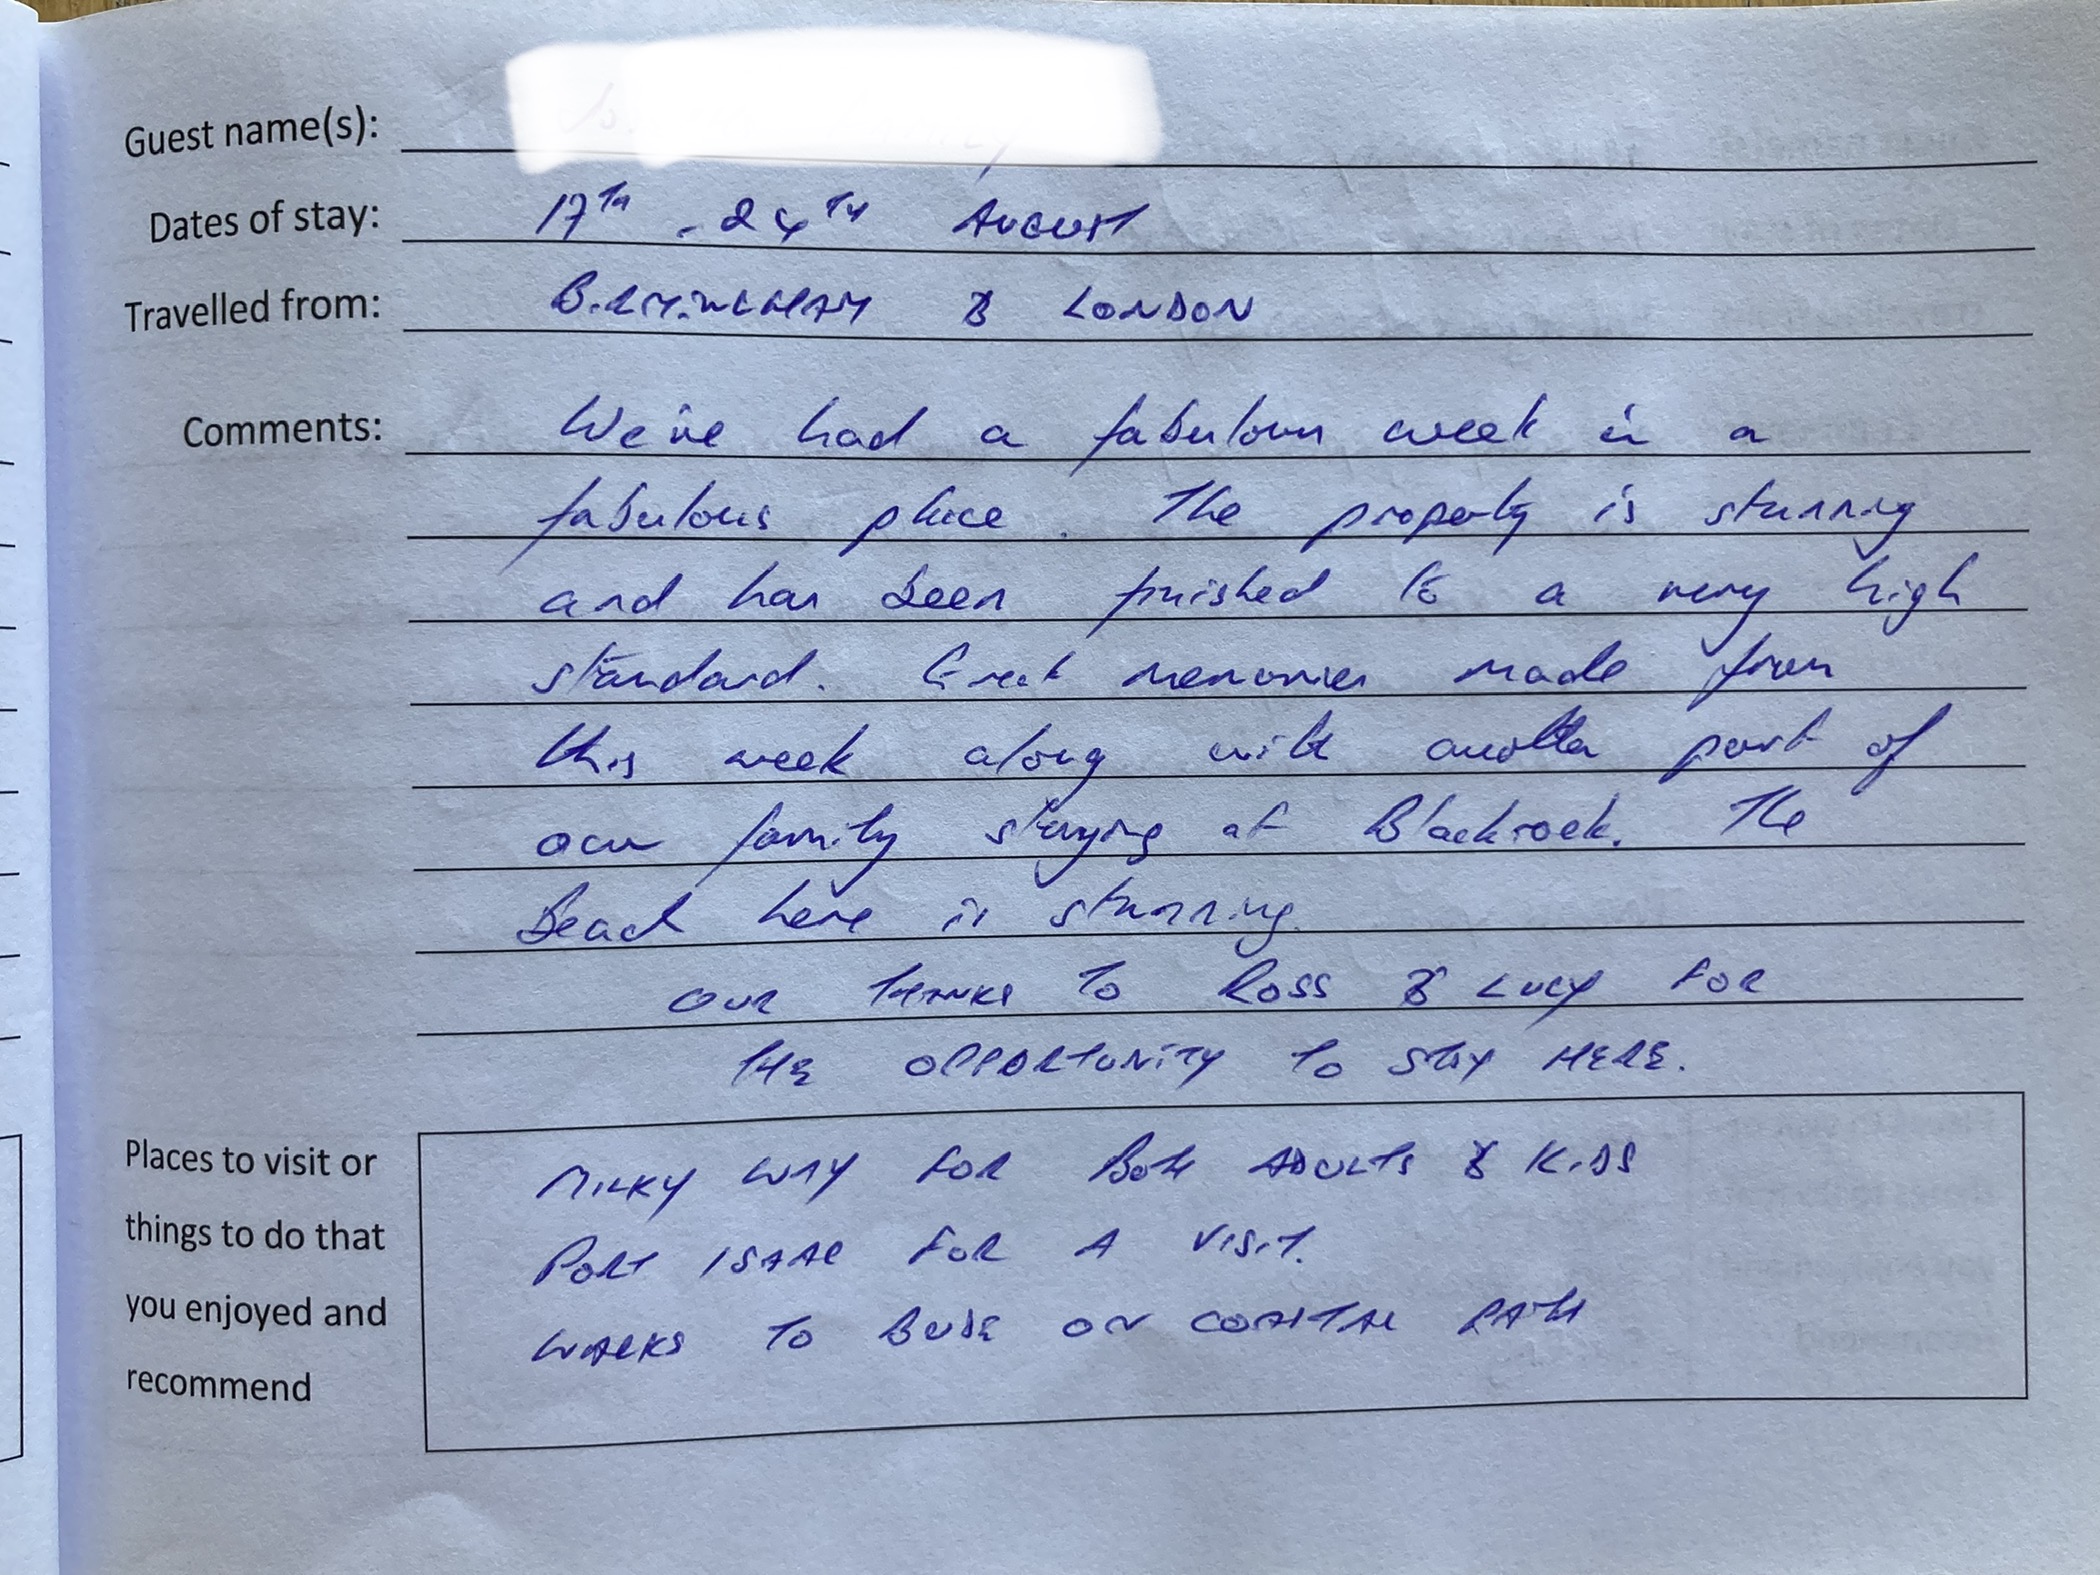 Guest name(s):
Dates of stay: 17TH - 24TH AUGUST
Travelled from: BIRMINGHAM & LONDON
Comments: We've had a fabulous week in a
fabulous place. The property is stunning
and has been finished to a very high
standard. Great memories made from
this week along with another part of
our family staying at Blackrock. The
Beach here is stunning.
OUR THANKS TO ROSS & LUCY FOR
THE OPPORTUNITY TO STAY HERE.
Places to visit or
things to do that
you enjoyed and
recommend
MILKY WAY FOR BOTH ADULTS & KIDS
PORT ISAAC FOR A VISIT.
WALKS TO BUDE ON COASTAL PATH